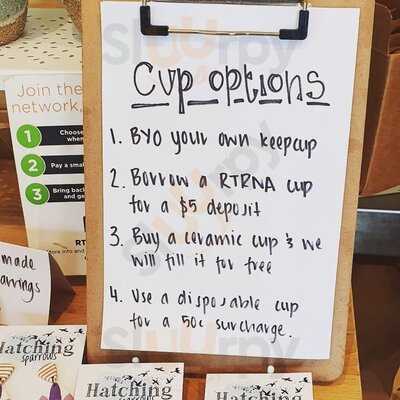 Cup options
1. BYO your own keepcup
2. Borrow a RTRNA cup
for a $5 deposit
3. Buy a ceramic cup & we
will fill it for free
4. Use a disposable cup
for a 50c surcharge.
Join the
network,
1 Choose
when
2 Pay a small
3 Bring back
and ge
RT
More info and
made
arrings
Hatching
sparrows
Hatching
sparrows
Hatching
sparrows
sluurpy